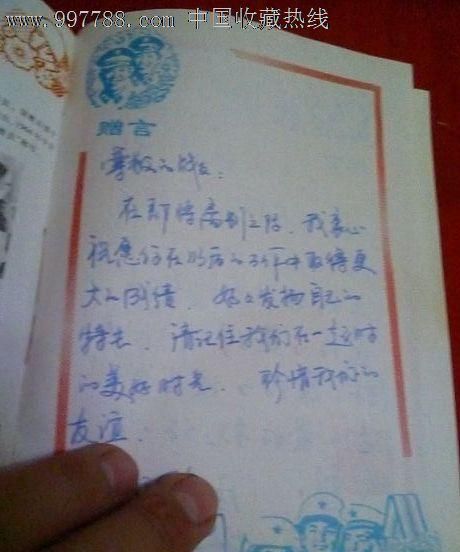 www.997788.com 中国收藏热线
赠言
尊敬的战友：
在即将离别之际，我衷心
祝愿你在以后的工作中取得更
大的成绩，好好发扬自己的
特长，请记住我们在一起时
的美好时光，珍惜我们的
友谊．